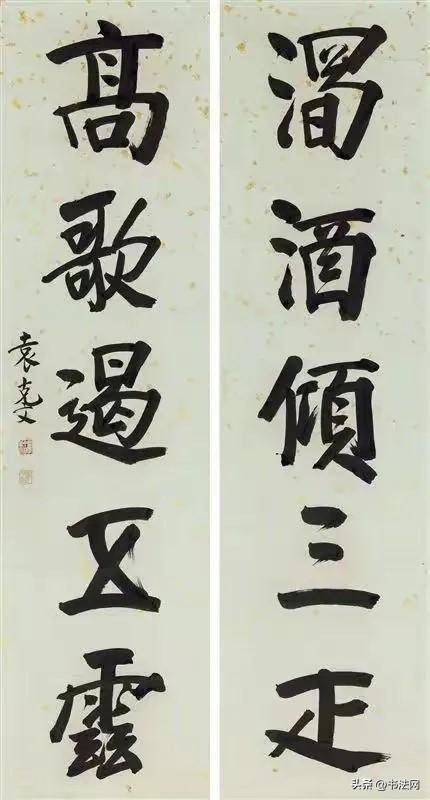 酒傾三疋
髙歌遏五雲
袁克文
头条 @书法网